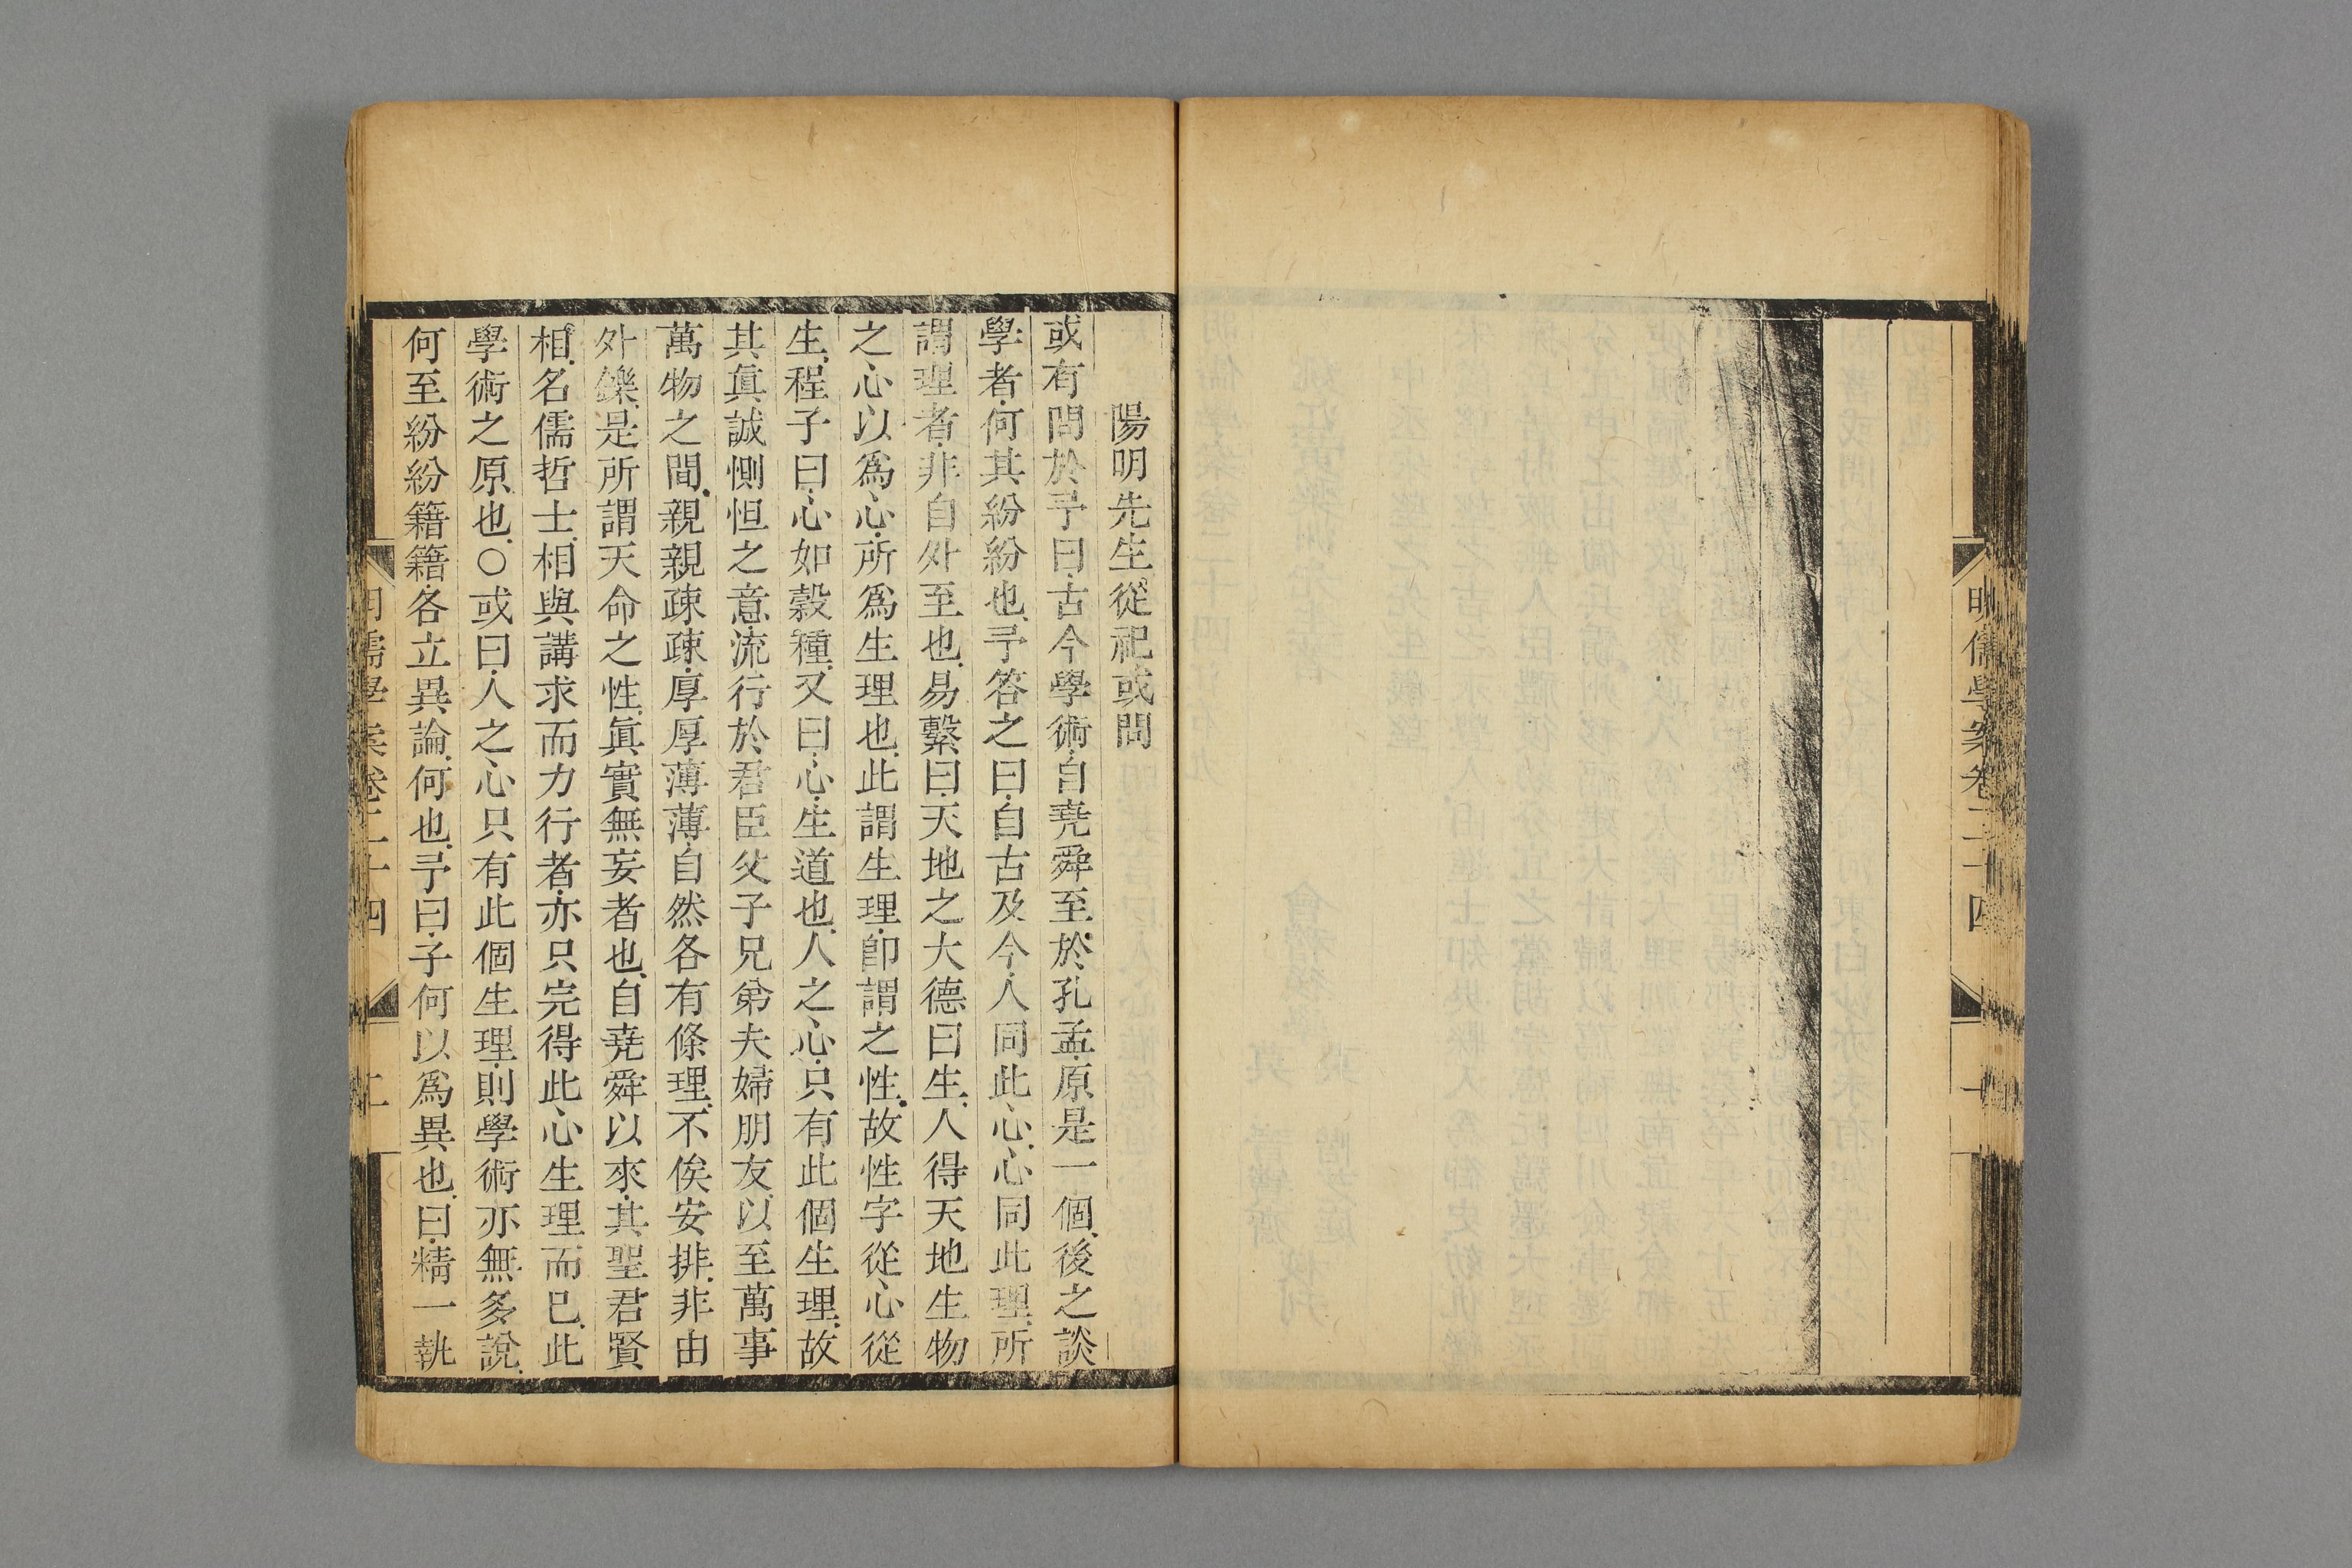 明儒學案卷二十四
一
陽明先生從祀或問
或有問於予曰古今學術自堯舜至於孔孟原是一個後之談
學者何其紛紛也予答之曰自古及今人同此心心同此理所
謂理者非自外至也易繫曰天地之大德曰生人得天地生物
之心以爲心所爲生理也此謂生理卽謂之性故性字從心從
生程子曰心如榖種又曰心生道也人之心只有此個生理故
其眞誠惻怛之意流行於君臣父子兄弟夫婦朋友以至萬事
萬物之間親親疎疎厚厚薄薄自然各有條理不俟安排非由
外鑠是所謂天命之性眞實無妄者也自堯舜以來其聖君賢
相名儒哲士相與講求而力行者亦只完得此心生理而已此
學術之原也○或曰人之心只有此個生理則學術亦無多說
何至紛紛籍籍各立異論何也予曰子何以爲異也曰精一執
明儒學案卷二十四
二